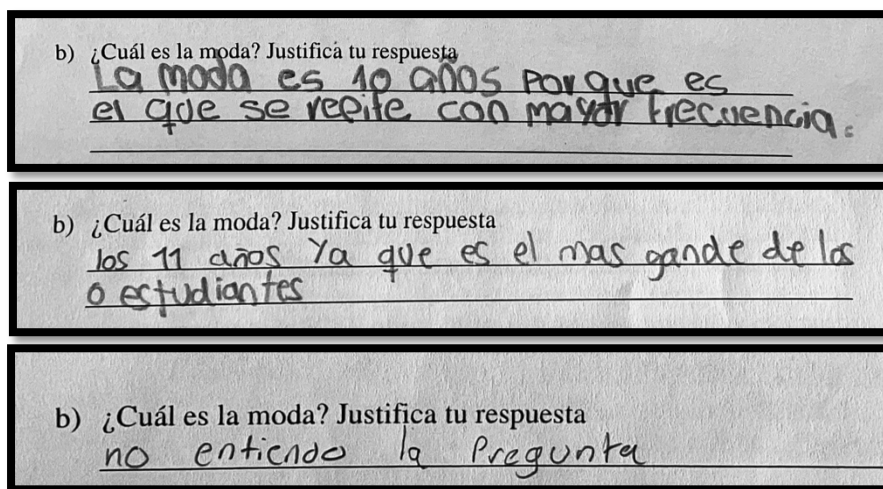 b) ¿Cuál es la moda? Justifica tu respuesta
La moda es 10 años porque es
el que se repite con mayor frecuencia.
b) ¿Cuál es la moda? Justifica tu respuesta
los 11 años ya que es el mas gande de los
o estudiantes
b) ¿Cuál es la moda? Justifica tu respuesta
no entiendo la pregunta